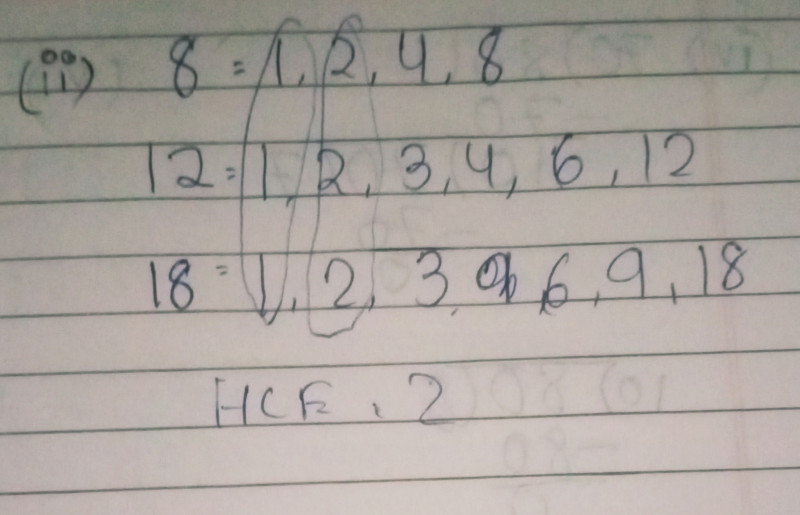 (ii) 8 = 1, 2, 4, 8
12 = 1, 2, 3, 4, 6, 12
18 = 1, 2, 3, 6, 9, 18
HCF = 2